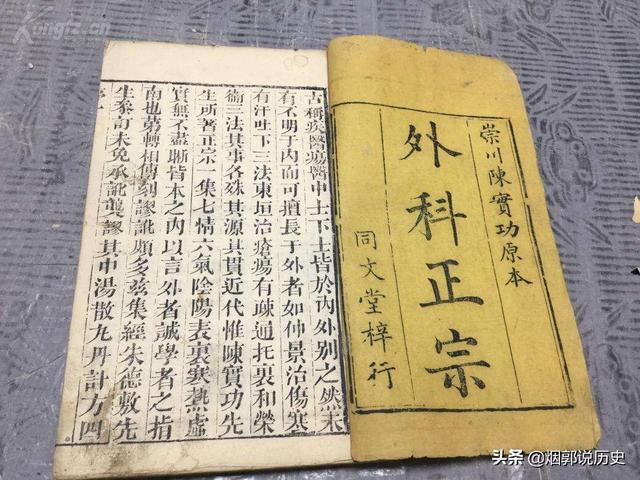 崇川陳實功原本
外科正宗
同文堂梓行
古稱疾醫瘍醫中士下士皆於內外別之然未
有不明于內而可擅長于外者如仲景治傷寒
有汗吐下三法東垣治瘡瘍有疎通托裏和榮
衞三法其事各殊其源其貫近代惟陳實功先
生所著正宗一集七情六氣陰陽表裏寒熱虛
實無不盡晰皆本之內以言外者誠學者之指
南也第轉相傳刻謬訛頗多茲集經朱德敷先
生參訂未免承訛襲謬其中湯散丸丹計方四
Kongfz.cn
头条 @烟郭说历史